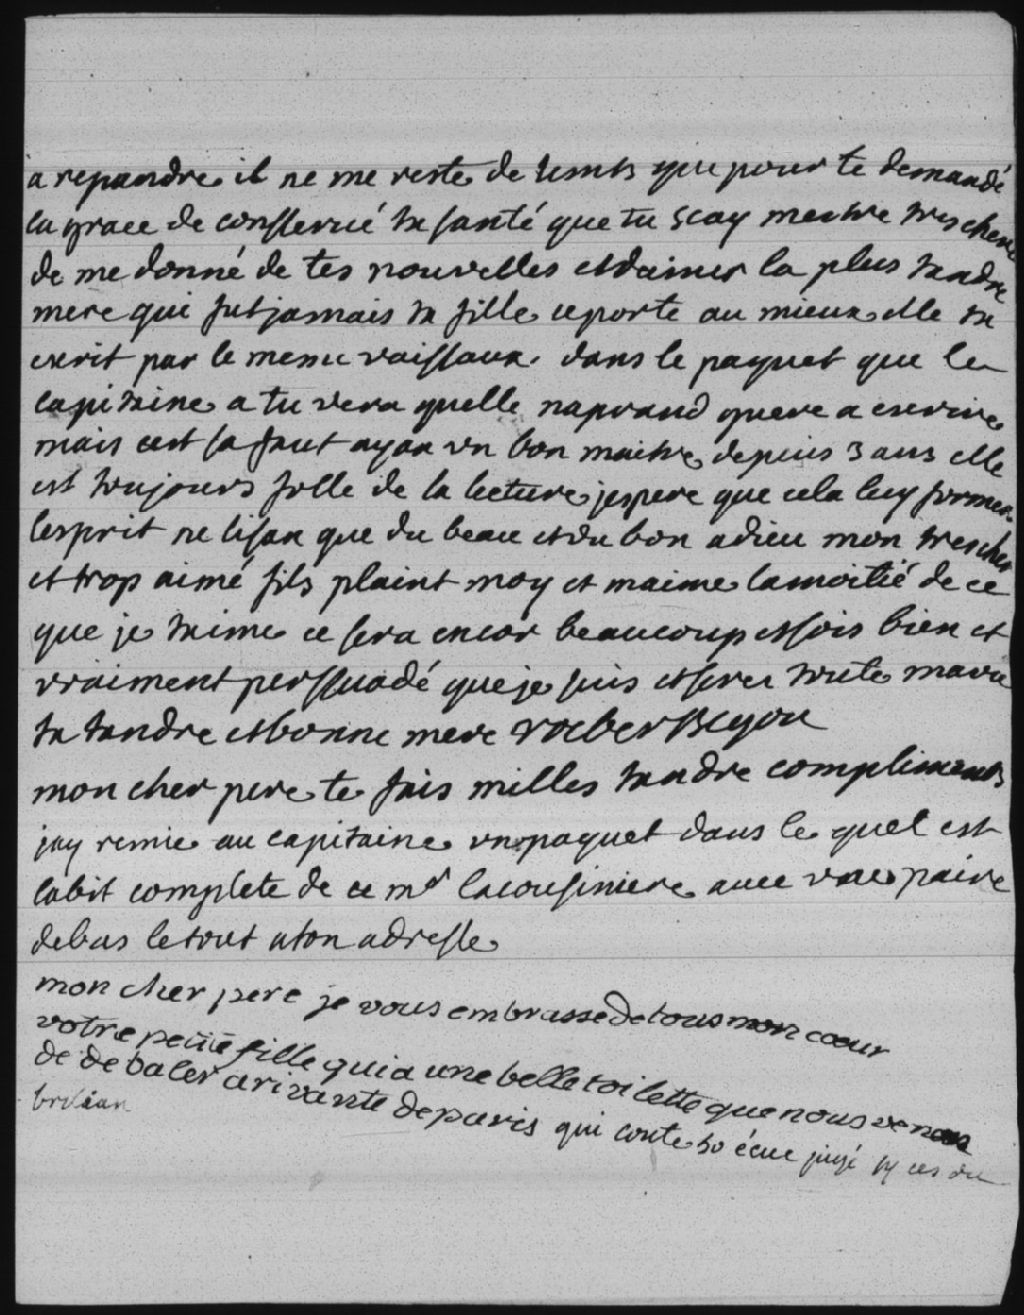 a repandre il ne me reste de temts que pour te demandé
la grace de conserué ta santé que tu scay mestre tres chere
de me donné de tes nouvelles et daimer la plus tandre
mere qui fut jamais ta fille ce porte au mieux elle ta
ecrit par le meme vaissaux dans le paquet que le
capitaine a tu vera quelle naprand guere a ecrire
mais cest sa faut ayan un bon maitre depuis 3 ans elle
est toujours folle de la lecture jespere que cela luy formera
lesprit ne lisan que du beau et du bon adieu mon tres cher
et trop aimé fils plaint moy et maime lamoitié de ce
que je taime ce sera encor beaucoup et sois bien et
vraiment perssuadé que je suis et serer toute ma vie
ta tandre et bonne mere rocber Begon
mon cher pere te fais milles tandre compliments
jay remie au capitaine un paquet dans le quel est
labit complete de ce mr lacousiniere avec une paire
debas le tout a ton adresse
mon cher pere je vous embrasse de tous mon coeur
votre petite fille qui a une belle toilette que nous venons
de de baler arivante de paris qui coute 50 écue jugé sy ces du
brilian